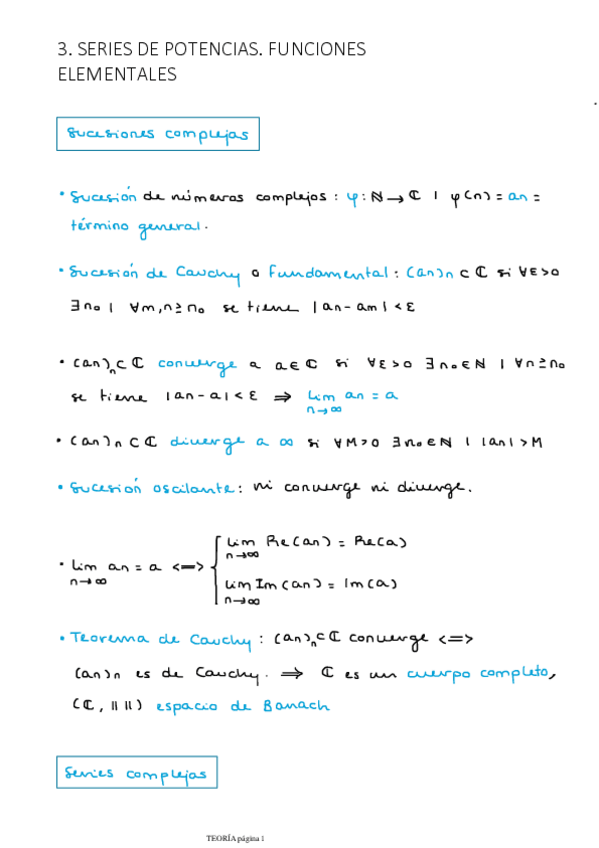 3. SERIES DE POTENCIAS. FUNCIONES
ELEMENTALES
Sucesiones complejas
• Sucesión de números complejos : φ: ℕ → ℂ | φ(n) = an =
término general.
• Sucesión de Cauchy o Fundamental : (an)n ⊂ ℂ si ∀ε>0
∃n₀ | ∀m,n≥n₀ se tiene |an - am| < ε
• (an)n ⊂ ℂ converge a a∈ℂ si ∀ε>0 ∃n₀∈ℕ | ∀n≥n₀
se tiene |an-a| < ε ⇒ lim an = a
n→∞
• (an)n ⊂ ℂ diverge a ∞ si ∀M>0 ∃n₀∈ℕ | |an| > M
• Sucesión oscilante: ni converge ni diverge.
lim Re(an) = Re(a)
n→∞
• lim an = a <=>
n→∞
lim Im(an) = Im(a)
n→∞
• Teorema de Cauchy : (an)n⊂ℂ converge <=>
(an)n es de Cauchy. ⇒ ℂ es un cuerpo completo,
(ℂ, || ||) espacio de Banach
Series complejas
TEORÍA página 1